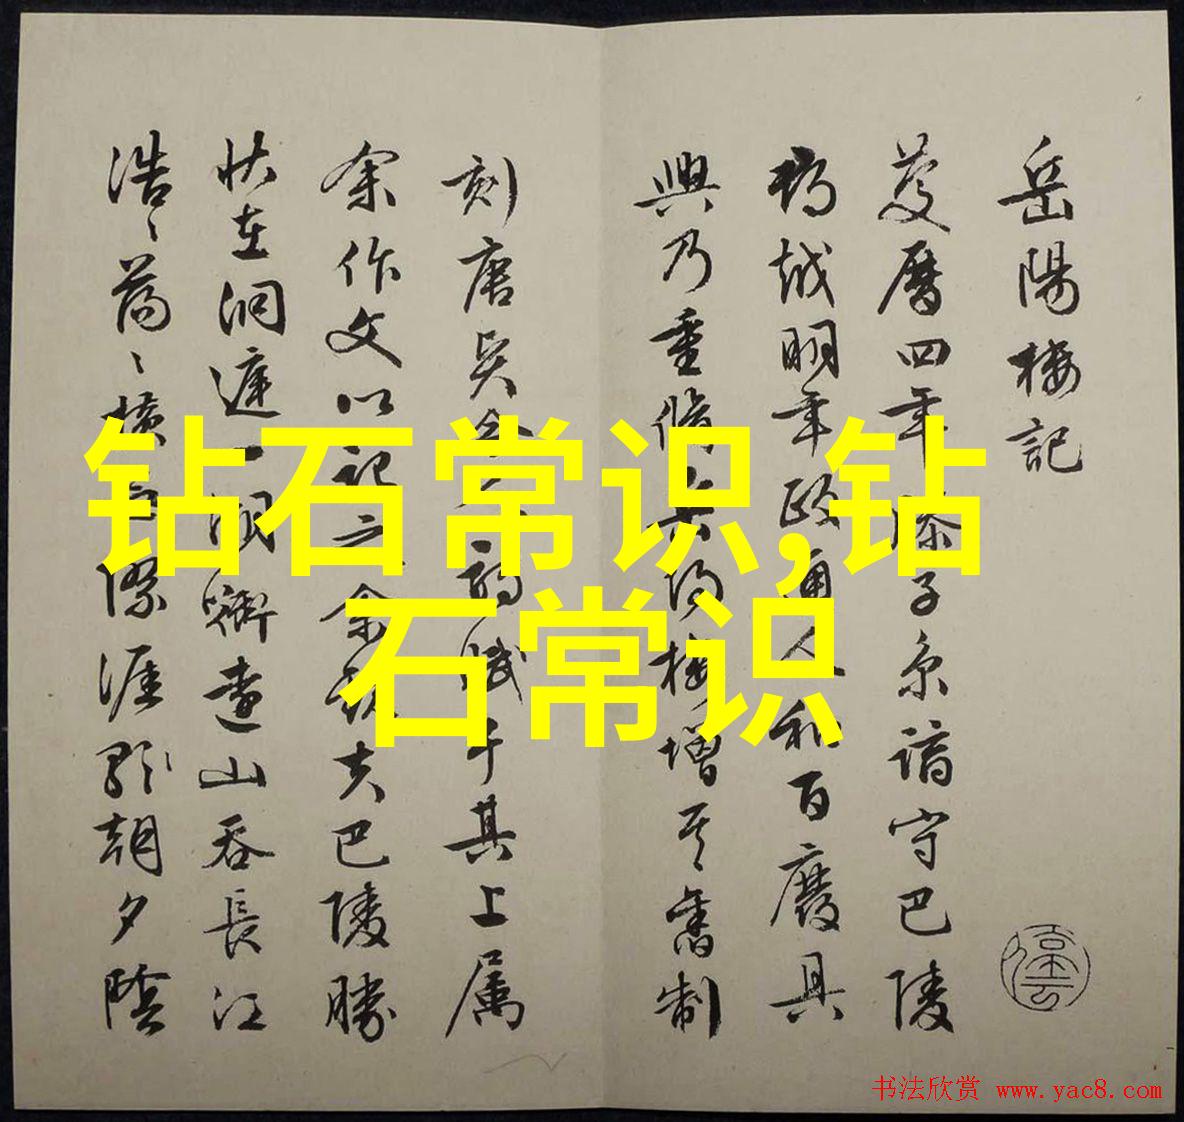 岳陽樓記
慶曆四年滕子京謫守巴陵
郡越明年政通人和百廢具
興乃重脩岳陽樓增其舊制
刻唐賢今人詩賦于其上属
余作文以記之余觀夫巴陵勝
状在洞庭一湖銜遠山吞長江
浩〻蕩〻橫無際涯朝夕陰
钻石常识,钻
石常识
书法欣赏 www.yac8.com